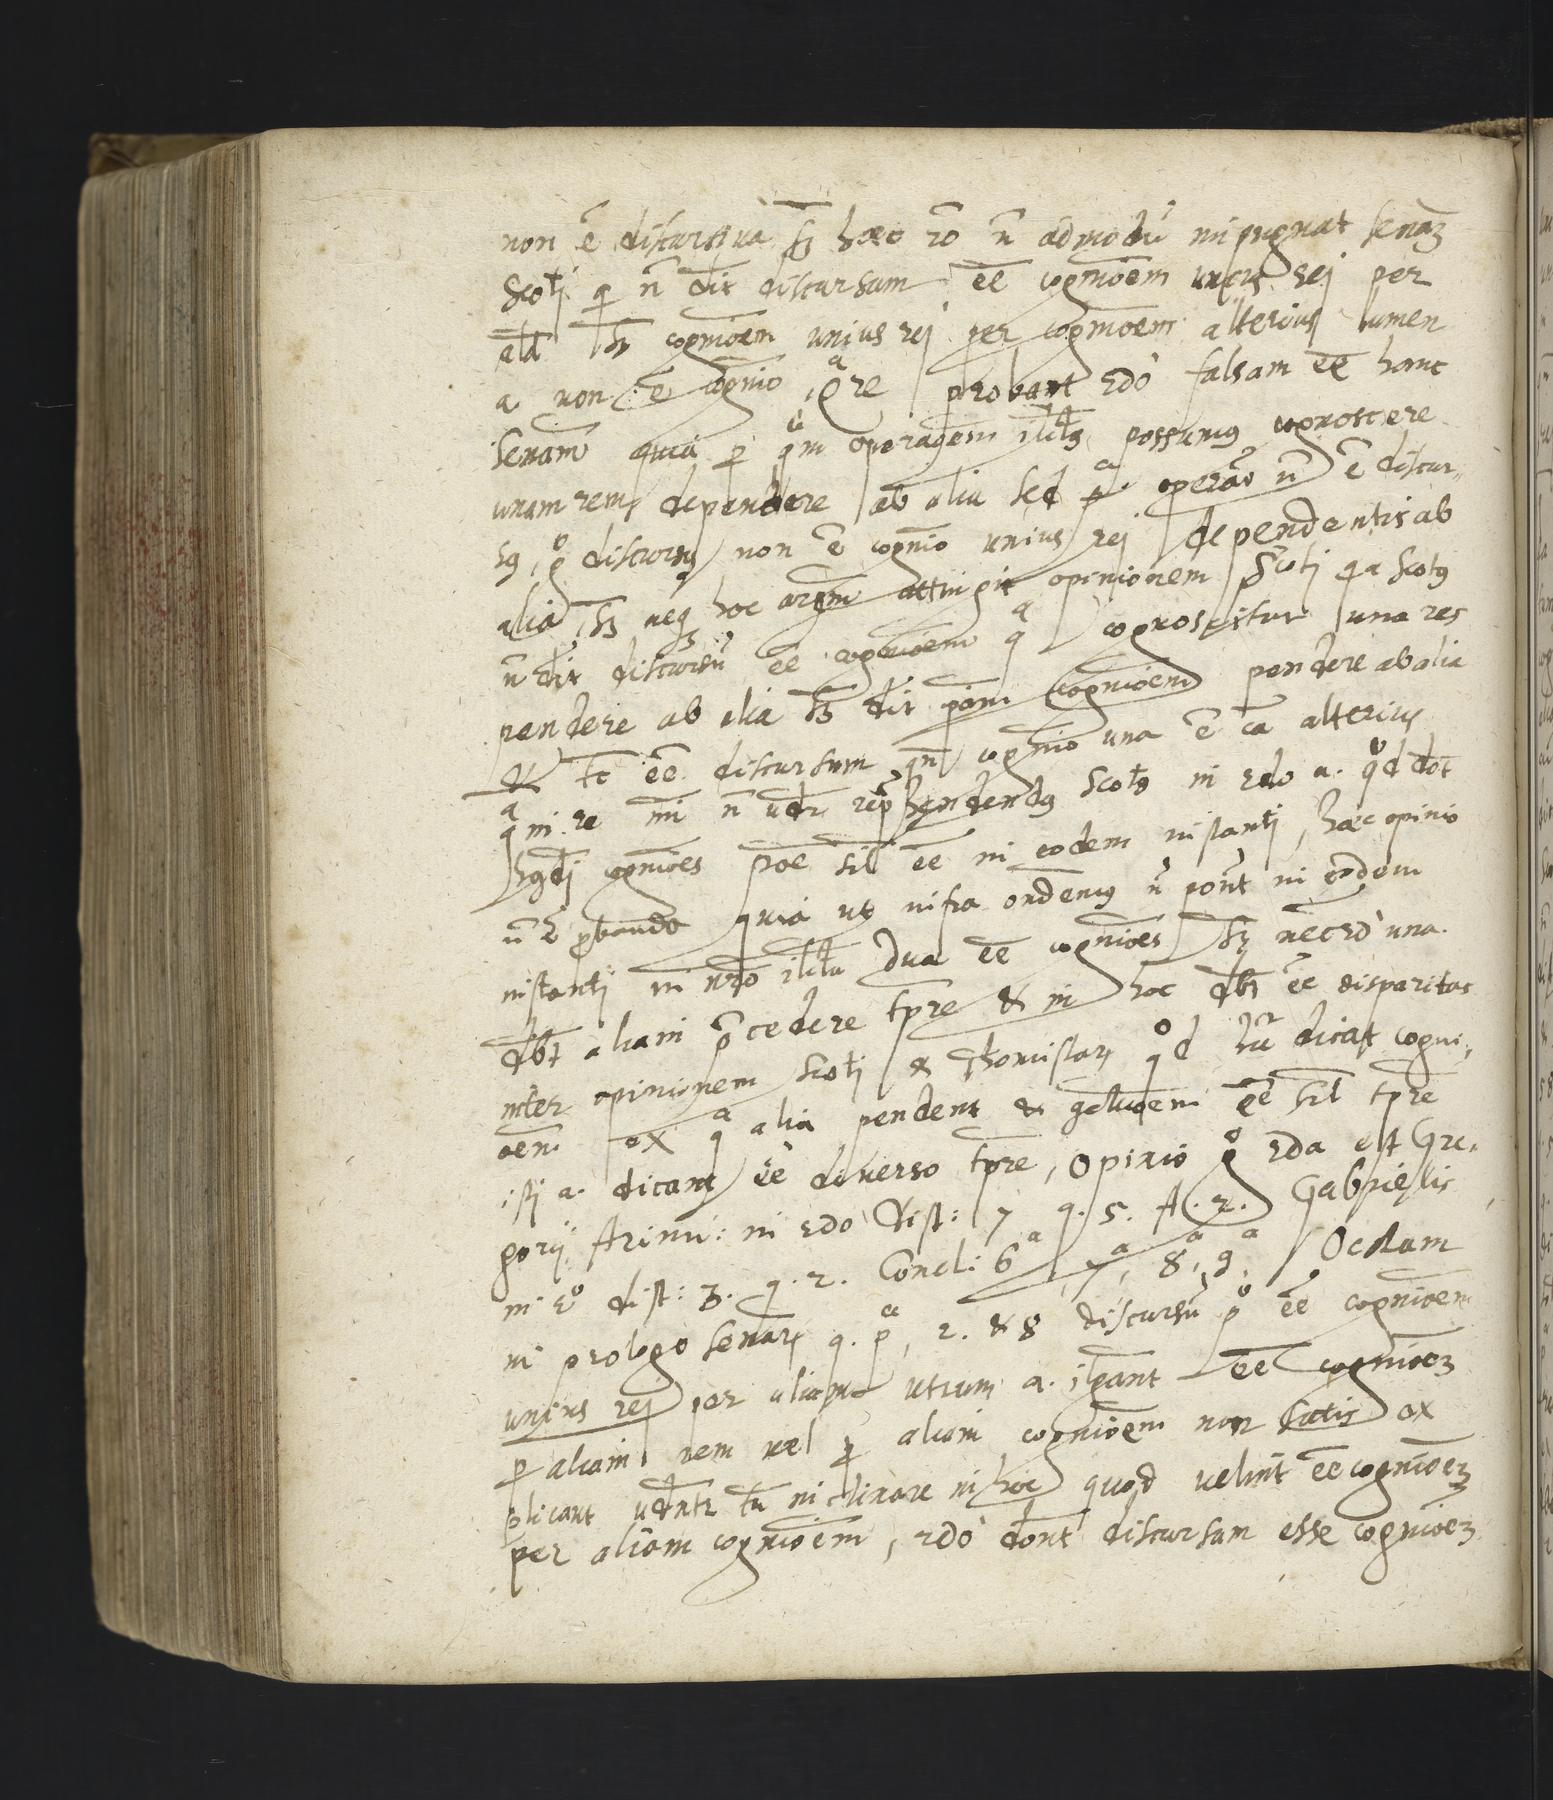 non ē discursiua, sꝫ haec rō n̄ admodū impugnat senāꝫ
Scoti qi n̄ dīt discursum ēē cognīoem unius rei per
alā sꝫ cognīoem unius rei per cognīoem alterius lumen
a. non ē cognīo, qᵃre probant 2do falsam ēē hanc
senam quia p̄ pᵃm operaōem illꝰ possumꝰ cognoscere
unam rem dependere ab alia sed pᵃ operaō n̄ ē discur„
sꝰ, gᵒ discursꝰ non ē cognīo unius rei dependentis ab
alia, sꝫ neqꝫ hoc argm̄ attingit opinionem Scoti qa Scotꝰ
n̄ dīt discursū ēē cognīoem qᵃ cognoscitur una res
pendere ab alia sꝫ dīt cognīoem pendere ab alia
& tc̄ ēē discursum qn̄ cognīo una ē cā alterius
qᵃ in re mi n̄ udr̄ reprehendendꝰ Scotꝰ in 2do a. qᵒd dōt
hꝰdi cognīoes poē sīl ēē in eodem instanti, haec opinio
n̄ ē probanda quia ut infra ondemꝰ n̄ pōnt in eodem
instanti in nr̄o illū dua ēē cognīoes sꝫ necr̄io una
dbt̄ aliam p̄cedere tp̄re & in hoc dbꝫ ēē disparitas
inter opinionem Scoti & Thomistarꝫ qᵒd ille dicat cogni„
oem ex qᵃ alia pendent & ēē sīl tp̄re
isti a. dicant ēē diuerso tp̄re, Opinio gᵒ 2da est Gre„
gorij Arimi: in 2do dist: 7 q. 5. A. 2. Gabrielis
in 2º dist: 3. q. 2. Concl: 6ᵃ, 7ᵃ, 8ᵃ, 9ᵃ, Ockam
in prologo senarꝫ q. pᵃ, 2. & 8 discursū pᵒ ēē cognīoem
unius rei per aliam utrum a. ēē cognīoeꝫ
p̄ aliam rem uel p̄ aliam cognīoem non satis ex
plicant udn̄tr tn̄ inclinare in hoc quod uelint ēē cognīoeꝫ
per aliam cognīoem, 2do dōnt discursum esse cognīoeꝫ